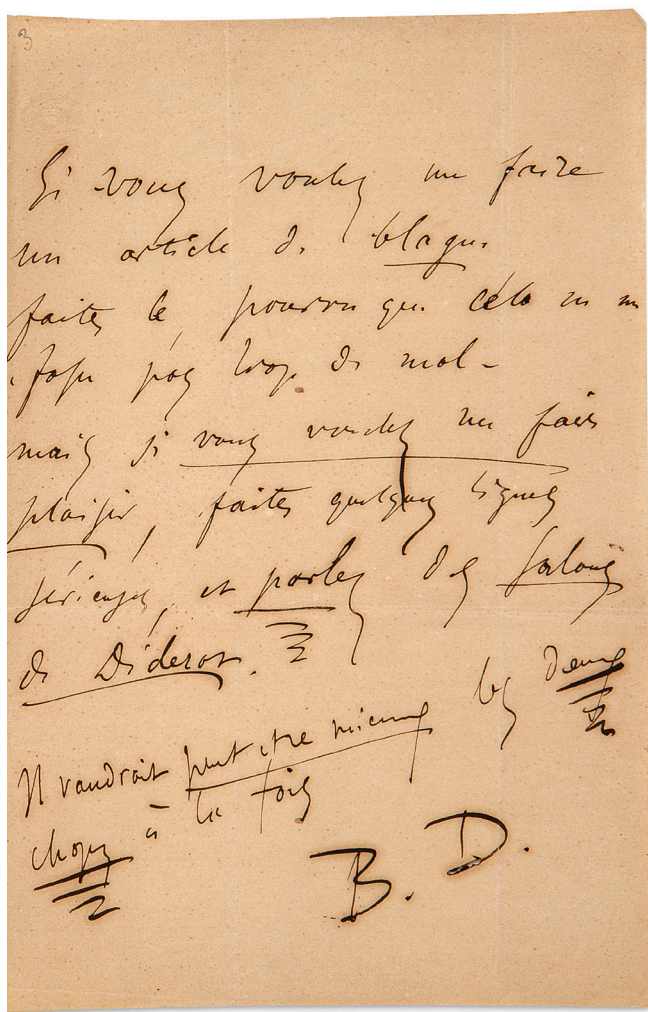 3
Si vous voulez me faire
un article de blague,
faites le, pourvu que cela ne me
fasse pas trop de mal –
mais si vous voulez me faire
plaisir, faites quelques lignes
sérieuses, et parlez des Salons
de Diderot.
Il vaudrait peut être mieux les deux
choses à la fois
B. D.